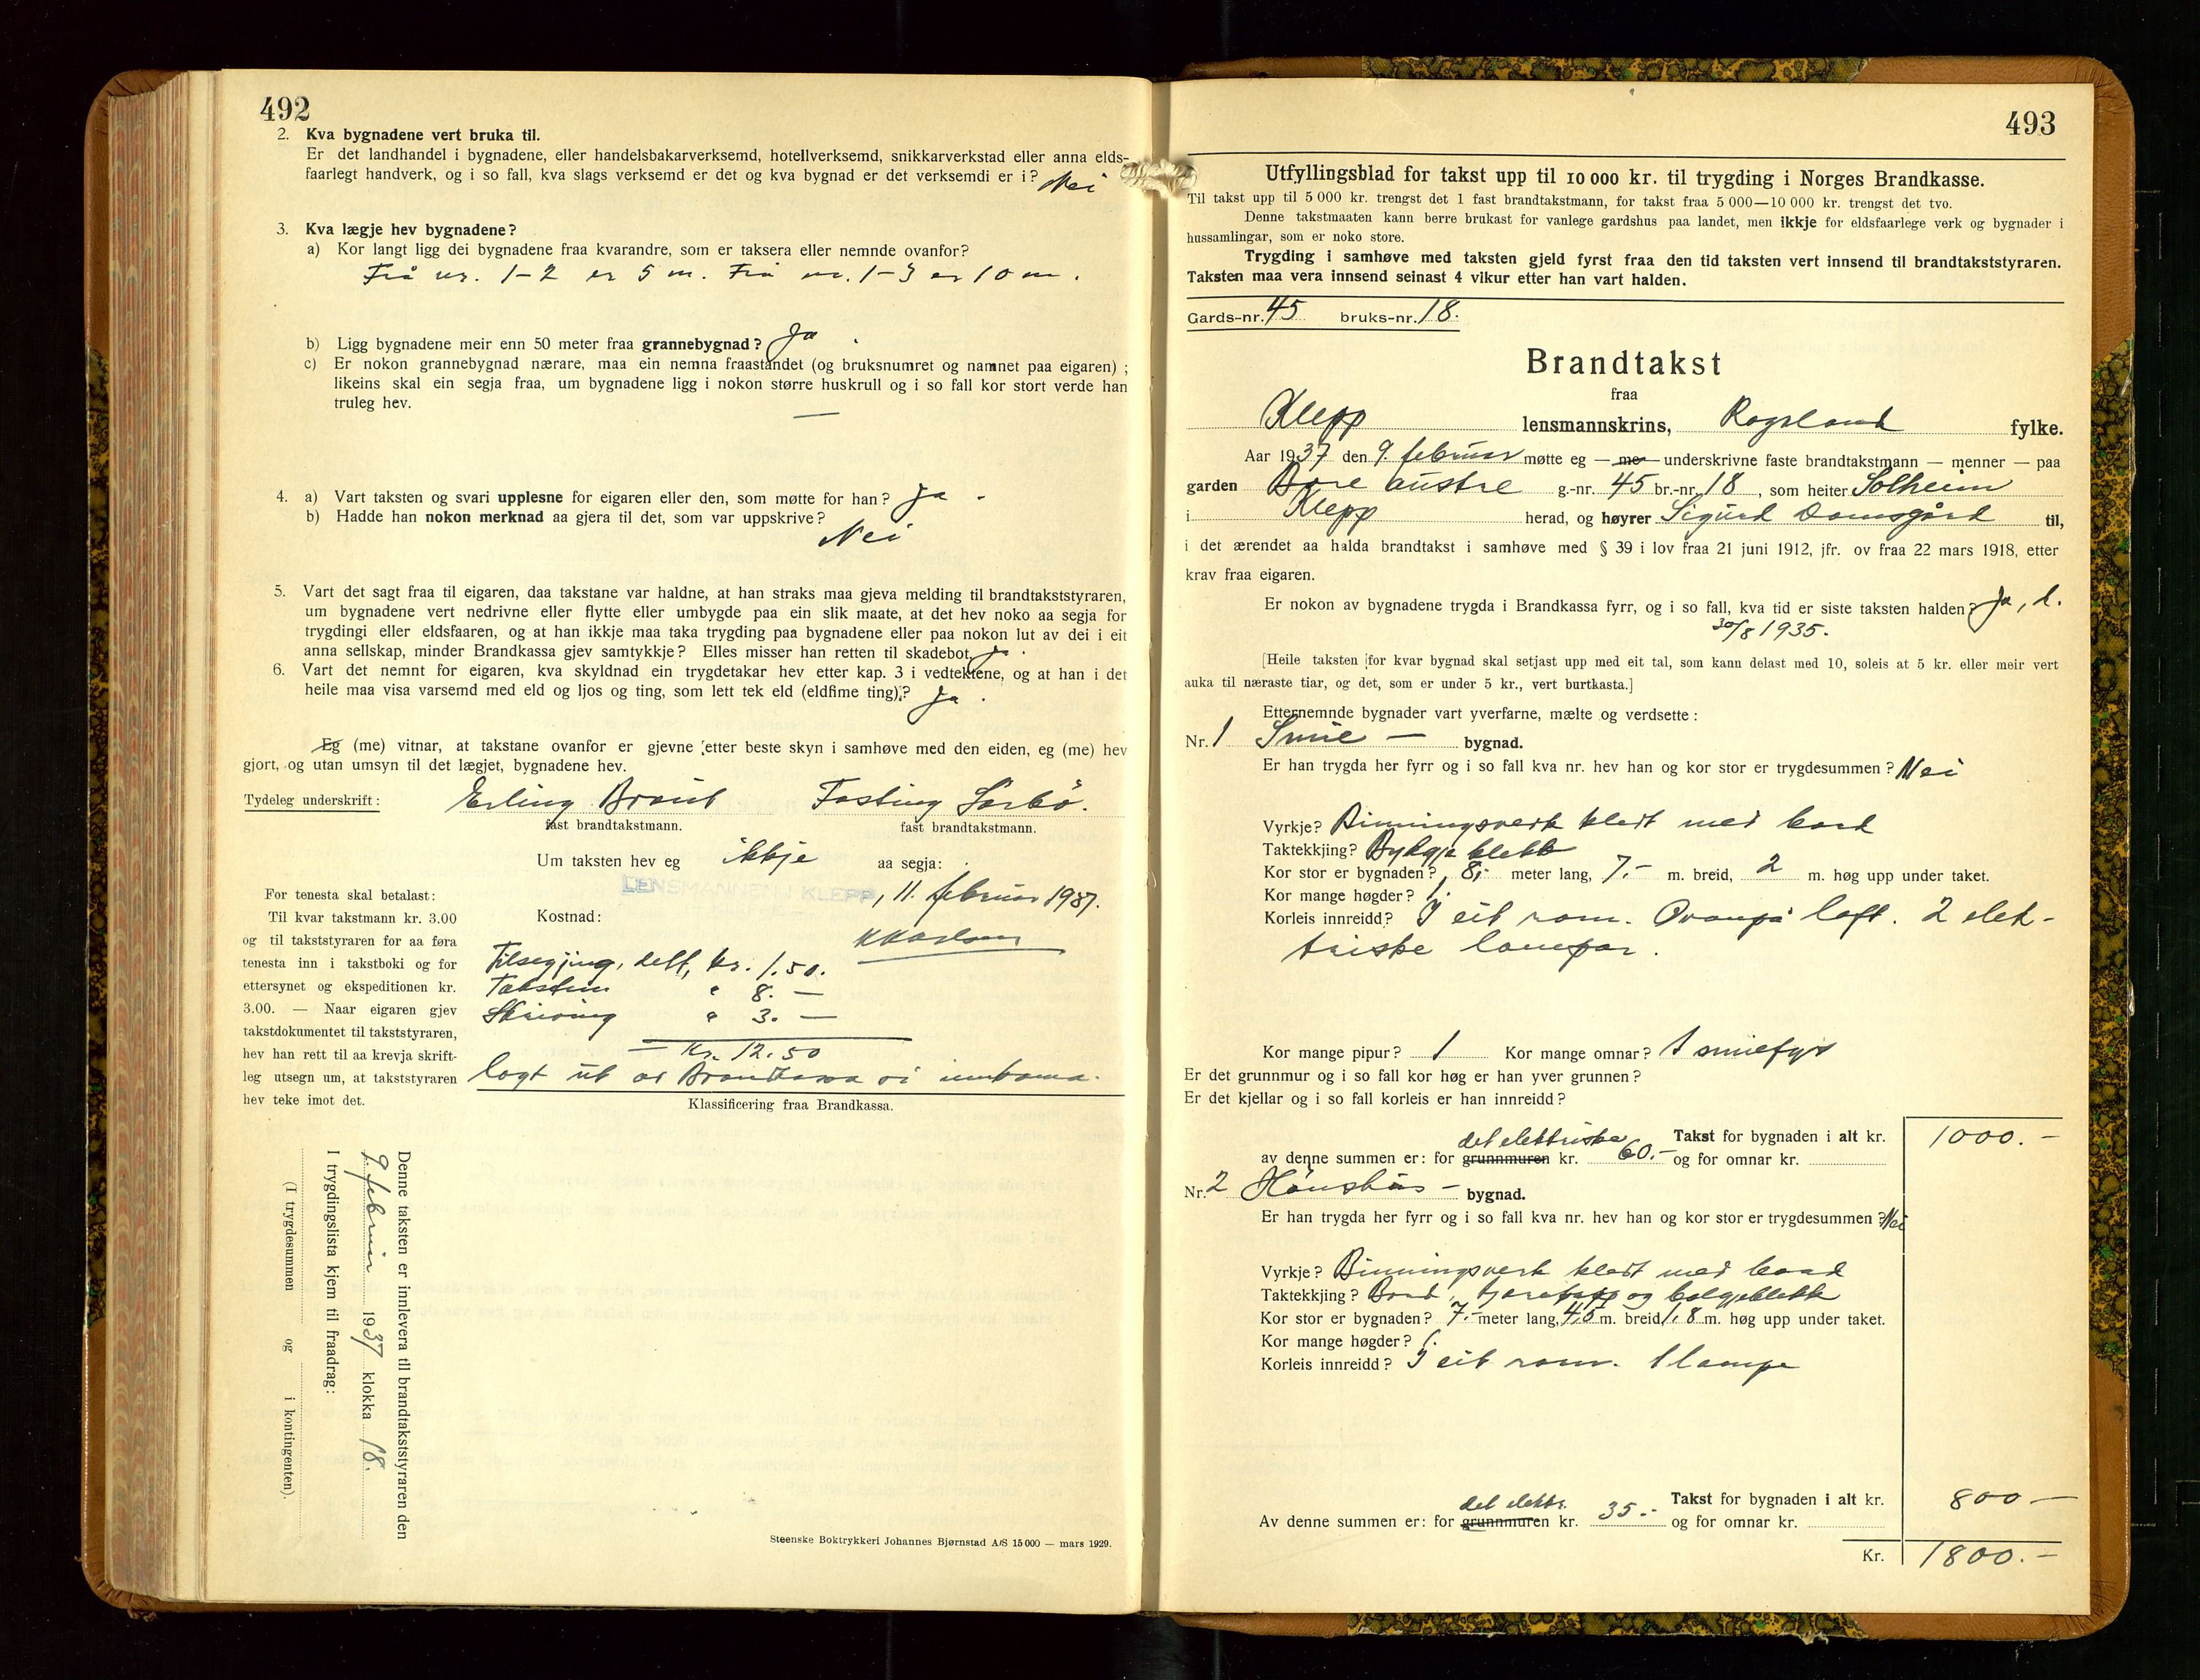 492
2. Kva bygnadene vert bruka til.
Er det landhandel i bygnadene, eller handelsbakarverksemd, hotellverksemd, snikkarverkstad eller anna elds-
faarlegt handverk, og i so fall, kva slags verksemd er det og kva bygnad er det verksemdi er i? Nei
3. Kva lægje hev bygnadene?
a) Kor langt ligg dei bygnadene fraa kvarandre, som er taksera eller nemnde ovanfor?
Frå nr. 1-2 er 5 m. Frå nr. 1-3 er 10 m.
b) Ligg bygnadene meir enn 50 meter fraa grannebygnad? Ja
c) Er nokon grannebygnad nærare, maa ein nemna fraastandet (og bruksnumret og namnet paa eigaren);
likeins skal ein segja fraa, um bygnadene ligg i nokon større huskrull og i so fall kor stort verde han
truleg hev. —
4. a) Vart taksten og svari upplesne for eigaren eller den, som møtte for han? Ja.
b) Hadde han nokon merknad aa gjera til det, som var uppskrive?
Nei
5. Vart det sagt fraa til eigaren, daa takstane var haldne, at han straks maa gjeva melding til brandtakststyraren,
um bygnadene vert nedrivne eller flytte eller umbygde paa ein slik maate, at det hev noko aa segja for
trygdingi eller eldsfaaren, og at han ikkje maa taka trygding paa bygnadene eller paa nokon lut av dei i eit
anna sellskap, minder Brandkassa gjev samtykkje? Elles misser han retten til skadebot. Ja.
6. Vart det nemnt for eigaren, kva skyldnad ein trygdetakar hev etter kap. 3 i vedtektene, og at han i det
heile maa visa varsemd med eld og ljos og ting, som lett tek eld (eldfime ting)? Ja.
Eg (me) vitnar, at takstane ovanfor er gjevne etter beste skyn i samhøve med den eiden, eg (me) hev
gjort, og utan umsyn til det lægjet, bygnadene hev.
Tydeleg underskrift: Erling Braut Fasting Sørbö.
fast brandtakstmann. fast brandtakstmann.
Um taksten hev eg ikkje aa segja:
LENSMANNEN I KLEPP, 11. februar 1937.
For tenesta skal betalast:
Til kvar takstmann kr. 3.00
og til takststyraren for aa føra
tenesta inn i takstboki og for
ettersynet og ekspeditionen kr.
3.00. — Naar eigaren gjev
takstdokumentet til takststyraren,
hev han rett til aa krevja skrift-
leg utsegn um, at takststyraren
hev teke imot det.
Kostnad:
Tilsegjing, delt, kr. 1.50.
Taksten " 8. —
Skriving " 3. —
Kr. 12.50
lagt ut av Brandkassa
Klassificering fraa Brandkassa.
Denne taksten er innlevera til brandtakststyraren den
9. februar 1937 klokka 18.
I trygdingslista kjem til fraadrag:
(I trygdesummen og i kontingenten).
Steenske Boktrykkeri Johannes Bjørnstad A/S 15 000 — mars 1929.
493
Utfyllingsblad for takst upp til 10 000 kr. til trygding i Norges Brandkasse.
Til takst upp til 5 000 kr. trengst det 1 fast brandtakstmann, for takst fraa 5 000—10 000 kr. trengst det tvo.
Denne takstmaaten kann berre brukast for vanlege gardshus paa landet, men ikkje for eldsfaarlege verk og bygnader i
hussamlingar, som er noko store.
Trygding i samhøve med taksten gjeld fyrst fraa den tid taksten vert innsend til brandtakststyraren.
Taksten maa vera innsend seinast 4 vikur etter han vart halden.
Gards-nr. 45 bruks-nr. 18.
Brandtakst
fraa
Klepp lensmannskrins, Rogaland fylke.
Aar 1937 den 9. februar møtte eg — me — underskrivne faste brandtakstmann — menner — paa
garden Bore austre g.-nr. 45 br.-nr. 18, som heiter Solheim
i Klepp herad, og høyrer Sigurd Domsgård til,
i det ærendet aa halda brandtakst i samhøve med § 39 i lov fraa 21 juni 1912, jfr. ov fraa 22 mars 1918, etter
krav fraa eigaren.
Er nokon av bygnadene trygda i Brandkassa fyrr, og i so fall, kva tid er siste taksten halden? Ja, d.
30/8 1935.
[Heile taksten for kvar bygnad skal setjast upp med eit tal, som kann delast med 10, soleis at 5 kr. eller meir vert
auka til næraste tiar, og det, som er under 5 kr., vert burtkasta.]
Etternemnde bygnader vart yverfarne, mælte og verdsette:
Nr. 1 Smie — bygnad.
Er han trygda her fyrr og i so fall kva nr. hev han og kor stor er trygdesummen? Nei
Vyrkje? Binningsverk kledt med bord
Taktekkjing? Bylgjeblekk
Kor stor er bygnaden? 8,- meter lang, 7.- m. breid, 2 m. høg upp under taket.
Kor mange høgder? 1.
Korleis innreidd? I eit rom. Ovanpå loft. 2 elek-
triske lampor.
Kor mange pipur? 1 Kor mange omnar? 1 smiefyr
Er det grunnmur og i so fall kor høg er han yver grunnen?
Er det kjellar og i so fall korleis er han innreidd?
Takst for bygnaden i alt kr. 1000.-
det elektriske
av denne summen er: for grunnmuren kr. 60.- og for omnar kr.
Nr. 2 Hönsehus — bygnad.
Er han trygda her fyrr og i so fall kva nr. hev han og kor stor er trygdesummen? Nei
Vyrkje? Binningsverk kledt med bord
Taktekkjing? Bord, tjærepapp og bølgjeblekk
Kor stor er bygnaden? 7.- meter lang, 4,5 m. breid 1,8 m. høg upp under taket.
Kor mange høgder? 1.
Korleis innreidd? I eit rom. 1 lampe
Takst for bygnaden i alt kr. 800 —
det elektr.
Av denne summen er: for grunnmuren kr. 35.- og for omnar kr.
Kr. 1800.-